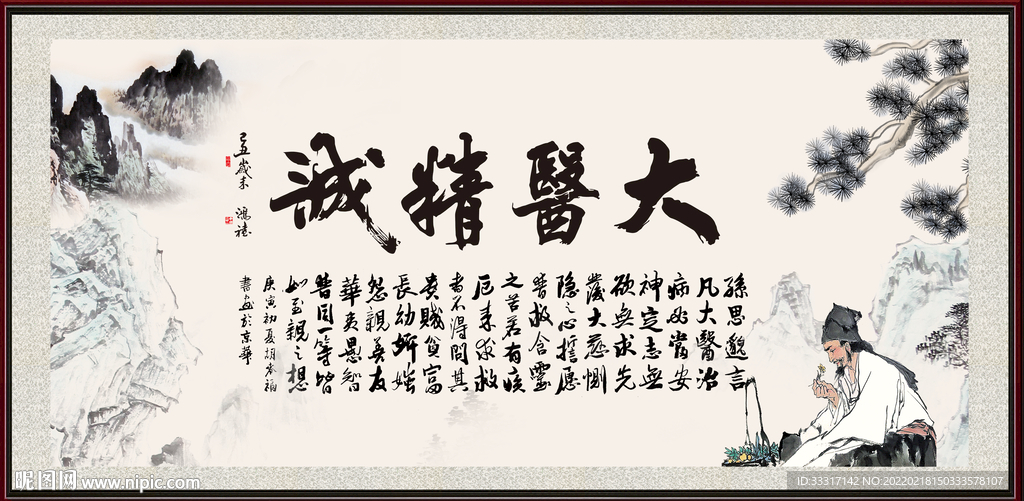 大醫精誠
孫思邈言
凡大醫治
病必當安
神定志無
欲無求先
發大慈惻
隱之心誓願
普救含靈
之苦若有疾
厄来求救
者不得問其
貴賤貧富
長幼妍媸
怨親善友
華夷愚智
普同一等皆
如至親之想
庚寅初夏胡
書畫於京華
昵图网 www.nipic.com
ID:33317142 NO:20220218150333578107